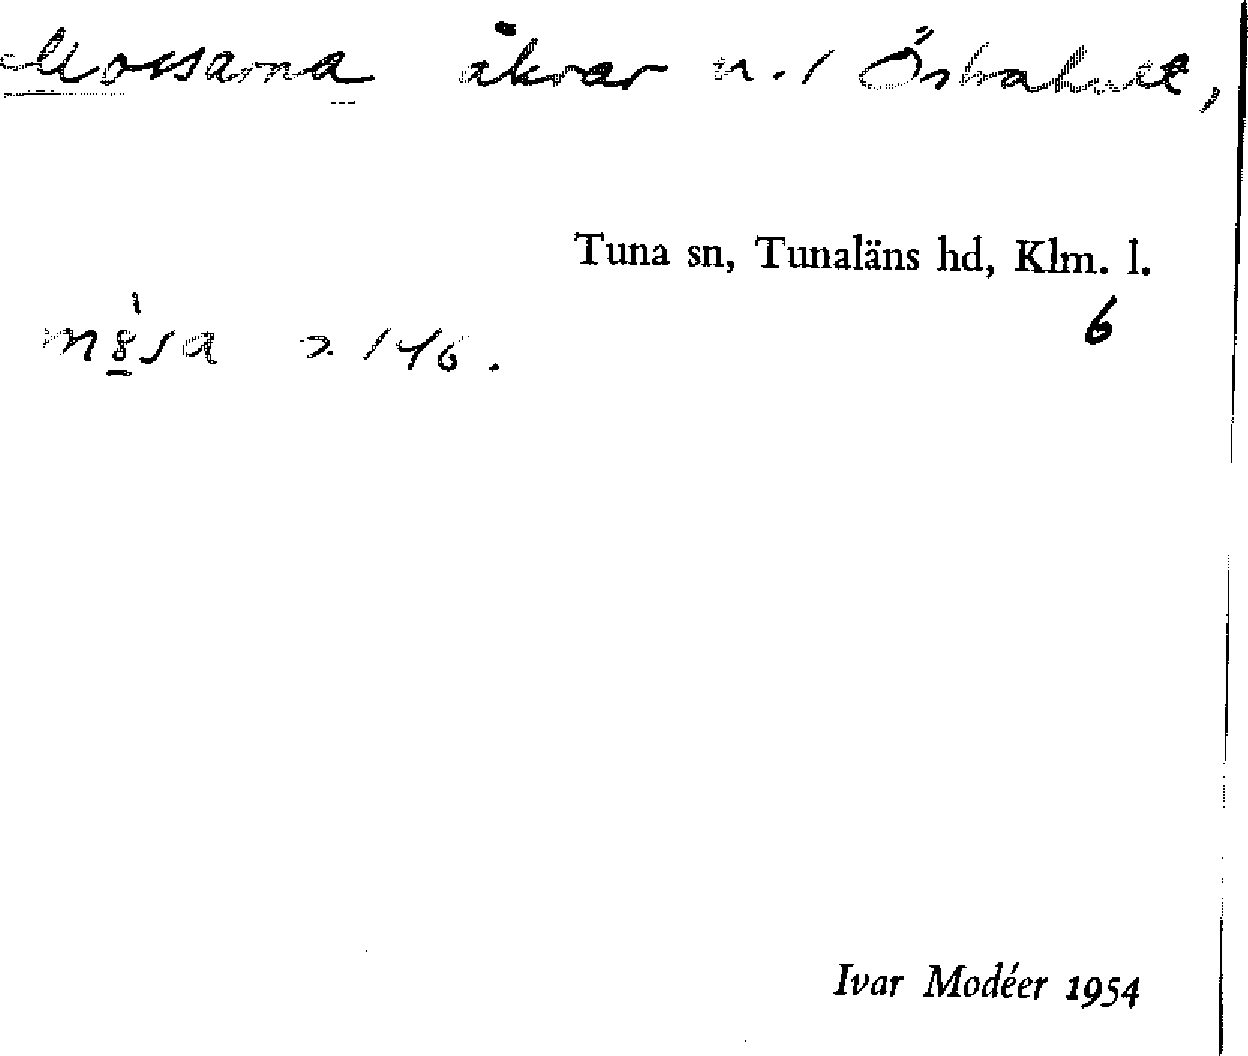 Mossarna åkrar n. / Östrahult,
Tuna sn, Tunaläns hd, Klm. l.
6
m8̱̍sa 2. 146.
Ivar Modéer 1954